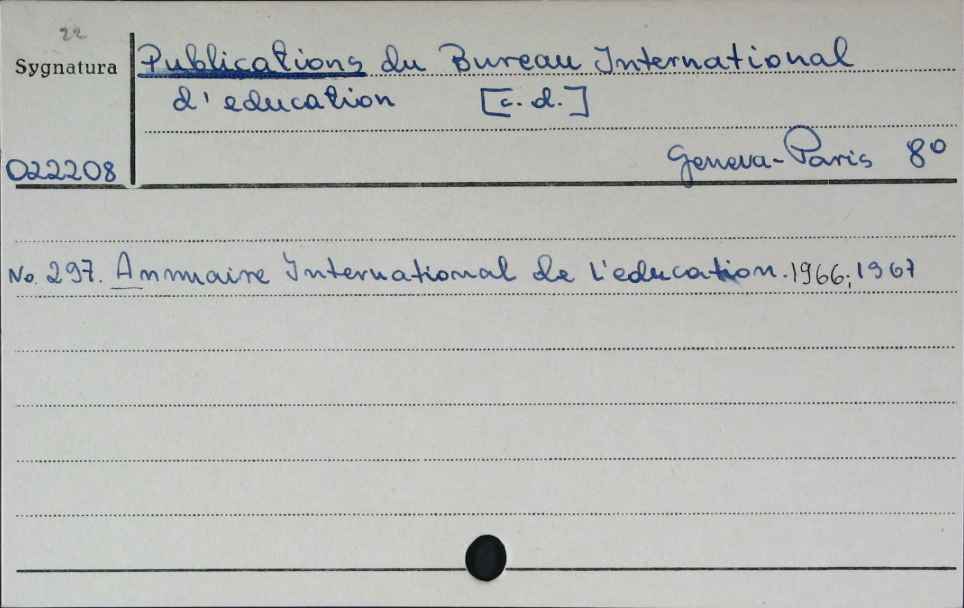 22
Sygnatura
Publications du Bureau International
d'education [c.d.]
Geneva-Paris 8º
022208
No. 297. Annuaire International de l'education. 1966; 1967